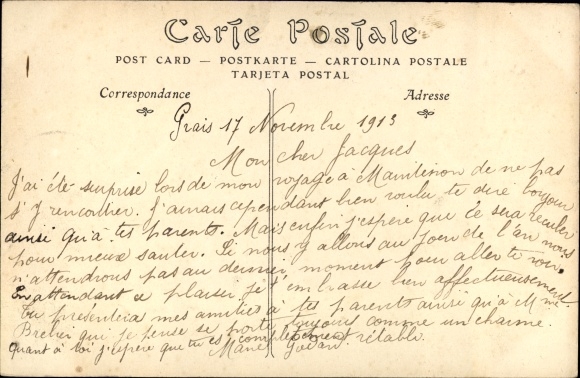 Carte Postale
POST CARD — POSTKARTE — CARTOLINA POSTALE
TARJETA POSTAL
Correspondance
Adresse
17 Novembre 1913
Mon cher Jacques
J'ai été surprise lors de mon voyage à Maintenon de ne pas
s'y rencontrer. J'aurais cependant bien voulu te dire bonjour
ainsi qu'à tes parents. Mais enfin j'espère que ce sera reculer
pour mieux sauter. Si nous y allons au jour de l'an nous
n'attendrons pas au dernier moment pour aller te voir.
En attendant ce plaisir je t'embrasse bien affectueusement.
Tu présentera mes amitiés à tes parents ainsi qu'à Mme
qui je pense se porte toujours comme un charme.
Quant à toi j'espère que tu es complètement rétabli.
Marie